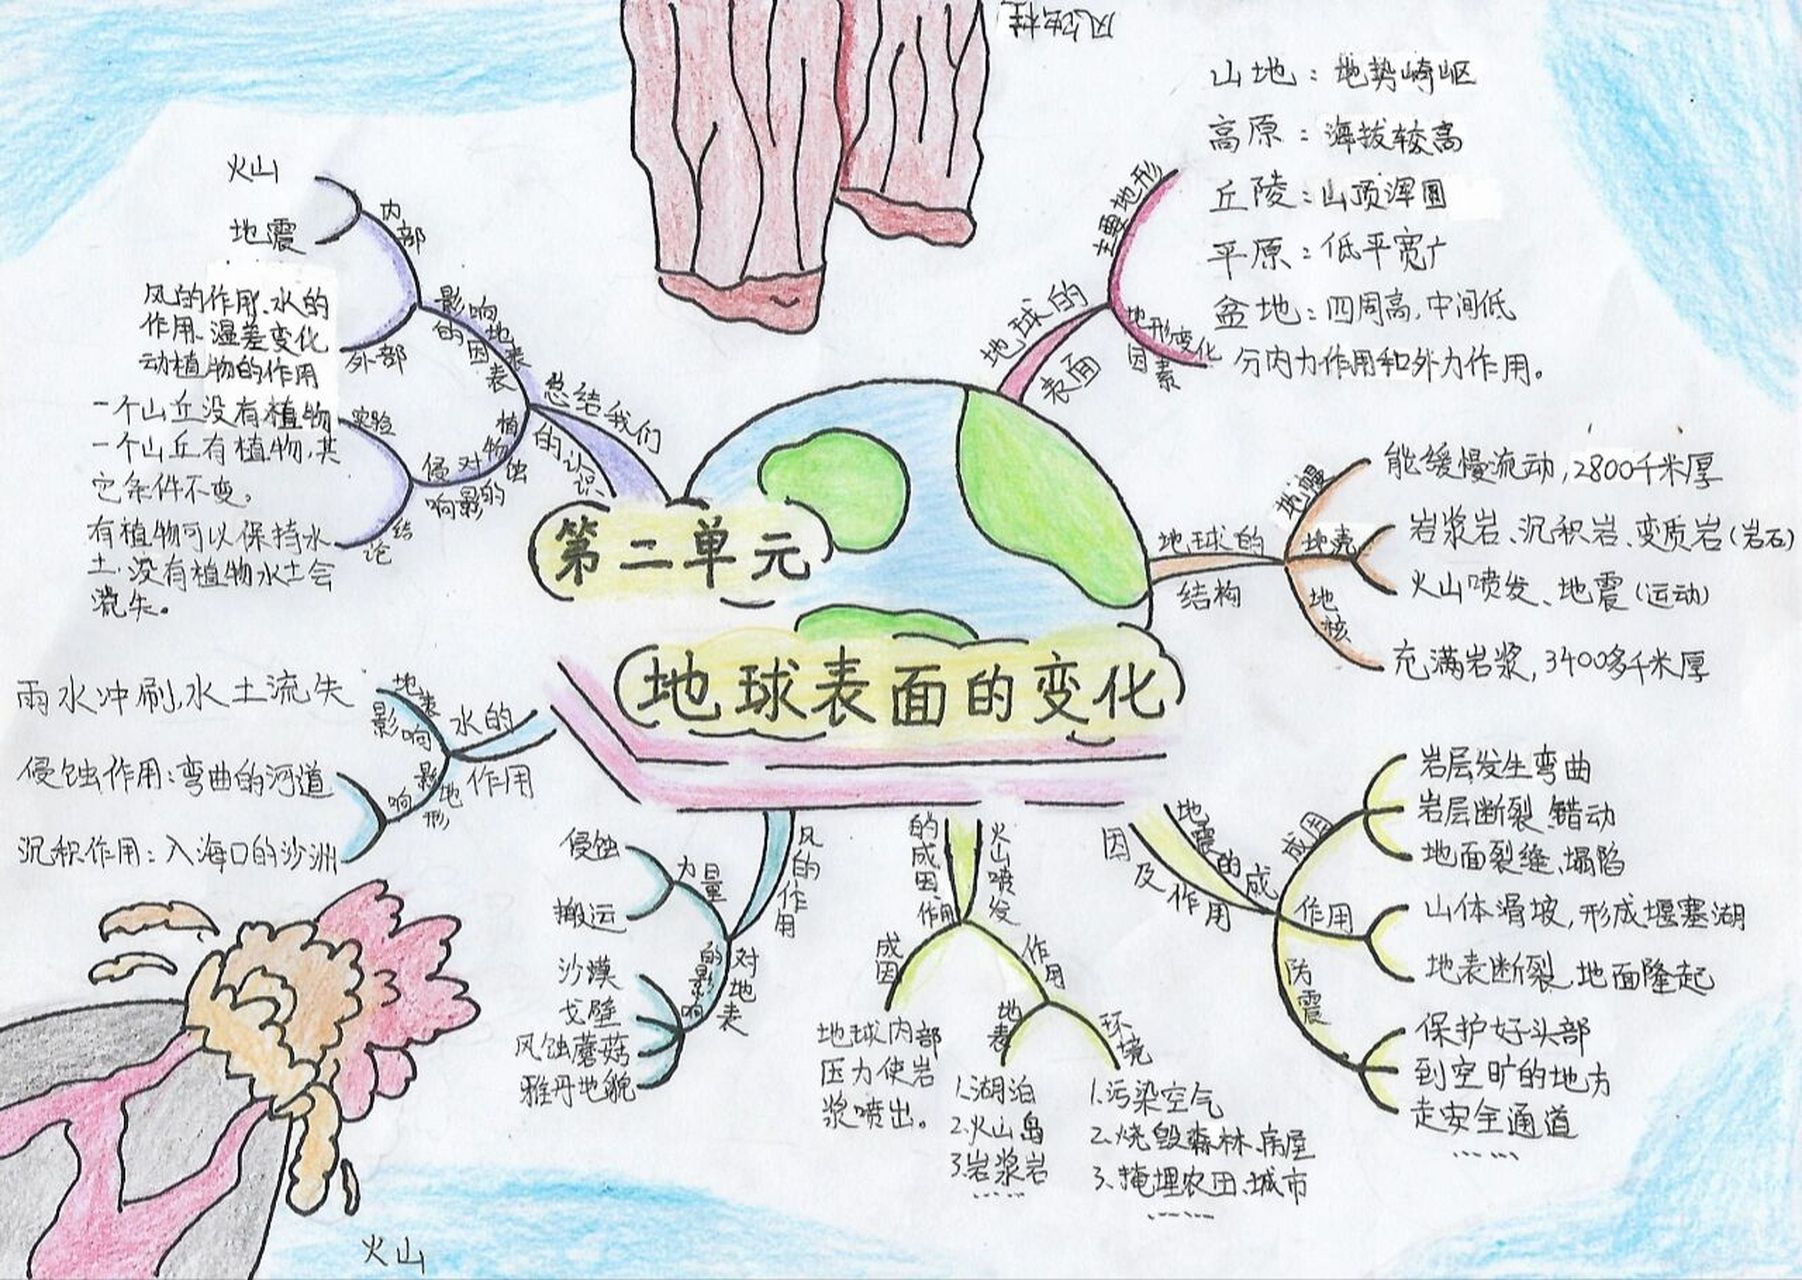 第二单元
地球表面的变化
风蚀柱
地球的
表面
主要地形
山地：地势崎岖
高原：海拔较高
丘陵：山顶浑圆
平原：低平宽广
盆地：四周高,中间低
地形变化
因素
分内力作用和外力作用。
地球的
结构
地幔
能缓慢流动,2800千米厚
地壳
岩浆岩、沉积岩、变质岩(岩石)
火山喷发、地震(运动)
地核
充满岩浆,3400多千米厚
地震的成
因及作用
成因
岩层发生弯曲
岩层断裂、错动
地面裂缝、塌陷
作用
山体滑坡,形成堰塞湖
地表断裂、地面隆起
防震
保护好头部
到空旷的地方
走安全通道
……
火山喷发
的成因、作用
成因
地球内部
压力使岩
浆喷出。
作用
地表
1.湖泊
2.火山岛
3.岩浆岩
……
环境
1.污染空气
2.烧毁森林、房屋
3.掩埋农田、城市
……
风的作用
力量
侵蚀
搬运
对地表
的影响
沙漠
戈壁
风蚀蘑菇
雅丹地貌
水的
作用
地表
影响
雨水冲刷,水土流失
影地形
响
侵蚀作用：弯曲的河道
沉积作用：入海口的沙洲
总结我们
的认识
影响地表
的因素
内部
火山
地震
外部
风的作用、水的
作用、温差变化
动植物的作用
植物
对侵蚀
的影响
实验
一个山丘没有植物
一个山丘有植物,其
它条件不变。
结论
有植物可以保持水
土.没有植物水土会
流失。
火山